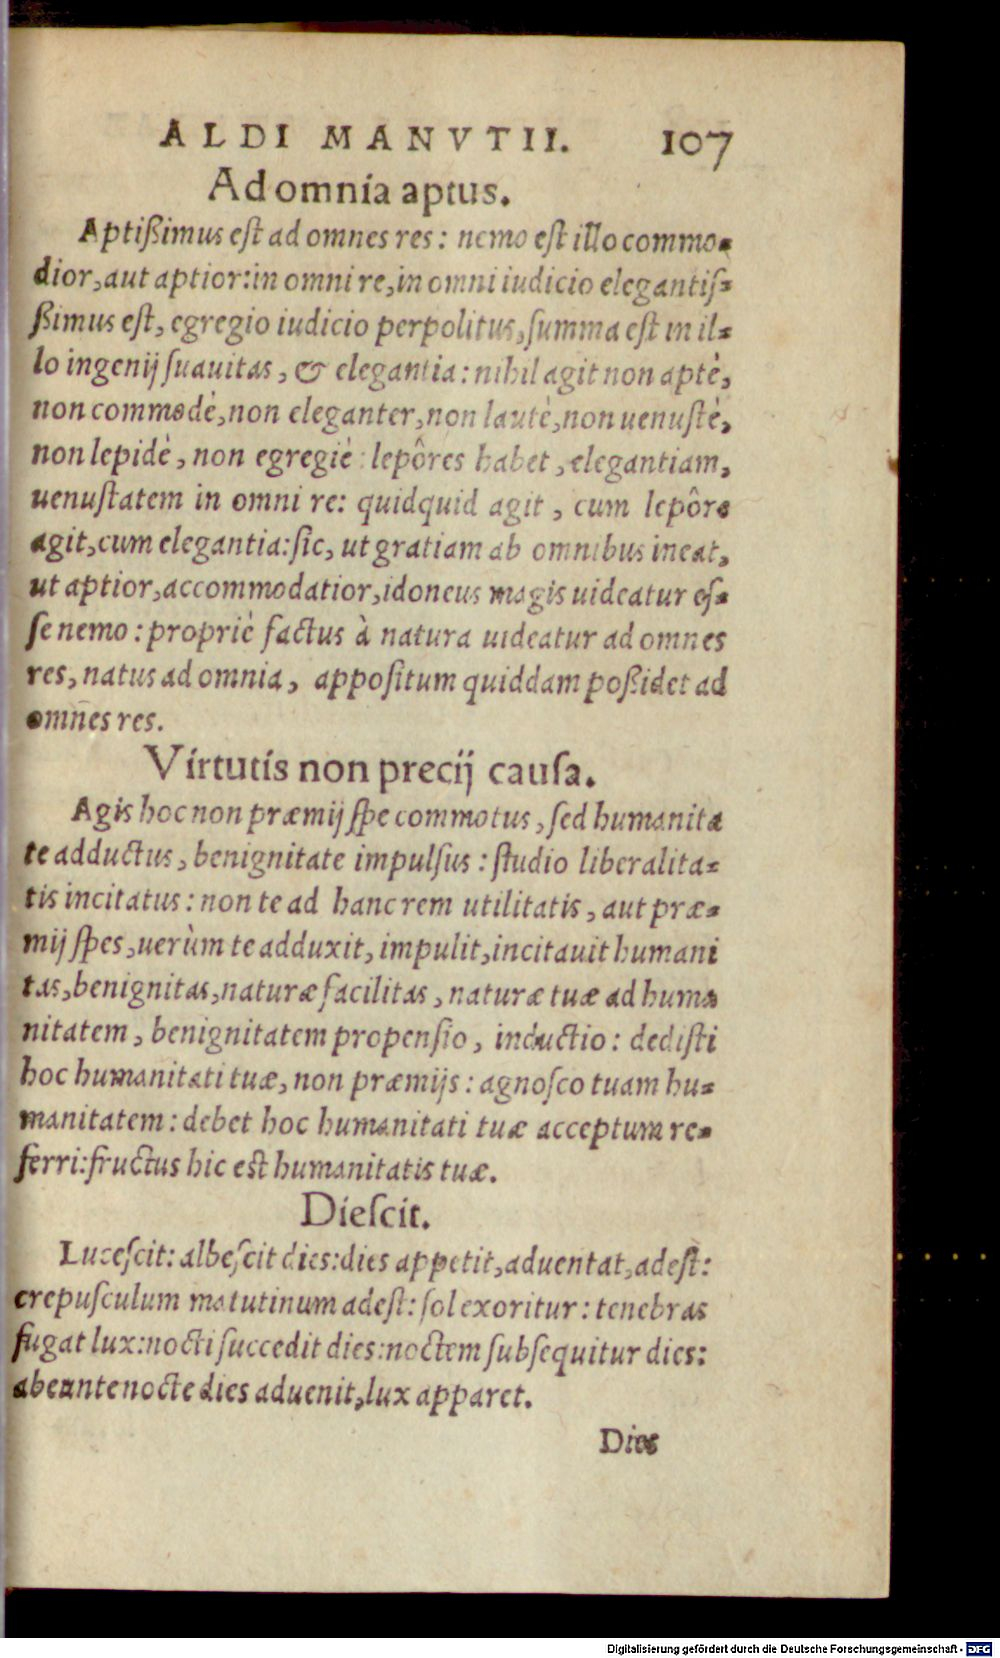 ALDI MANVTII. 107
Ad omnia aptus.
Aptißimus est ad omnes res: nemo est illo commo-
dior, aut aptior: in omni re, in omni iudicio elegantiſ-
ßimus eſt, egregio iudicio perpolitus, ſumma eſt in il-
lo ingenij ſuauitas, & elegantia: nihil agit non aptè,
non commodè, non eleganter, non lautè, non uenuſtè,
non lepidè, non egregiè: lepôres habet, elegantiam,
uenuſtatem in omni re: quidquid agit, cum lepôre
agit, cum elegantia: ſic, ut gratiam ab omnibus ineat,
ut aptior, accommodatior, idoneus magis uideatur eſ-
ſe nemo: propriè factus à natura uideatur ad omnes
res, natus ad omnia, appoſitum quiddam poßidet ad
omnes res.
Virtutis non precij cauſa.
Agis hoc non præmij ſpe commotus, ſed humanita
te adductus, benignitate impulſus: ſtudio liberalita-
tis incitatus: non te ad hanc rem utilitatis, aut præ-
mij ſpes, uerùm te adduxit, impulit, incitauit humani
tas, benignitas, naturæ facilitas, naturæ tuæ ad huma
nitatem, benignitatem propenſio, inductio: dediſti
hoc humanitati tuæ, non præmijs: agnoſco tuam hu-
manitatem: debet hoc humanitati tuæ acceptum re-
ferri: fructus hic eſt humanitatis tuæ.
Dieſcit.
Luceſcit: albeſcit dies: dies appetit, aduentat, adeſt:
crepuſculum matutinum adeſt: ſol exoritur: tenebras
fugat lux: nocti ſuccedit dies: noctem ſubſequitur dies:
abeunte nocte dies aduenit, lux apparet.
Dies
Digitalisierung gefördert durch die Deutsche Forschungsgemeinschaft - DFG